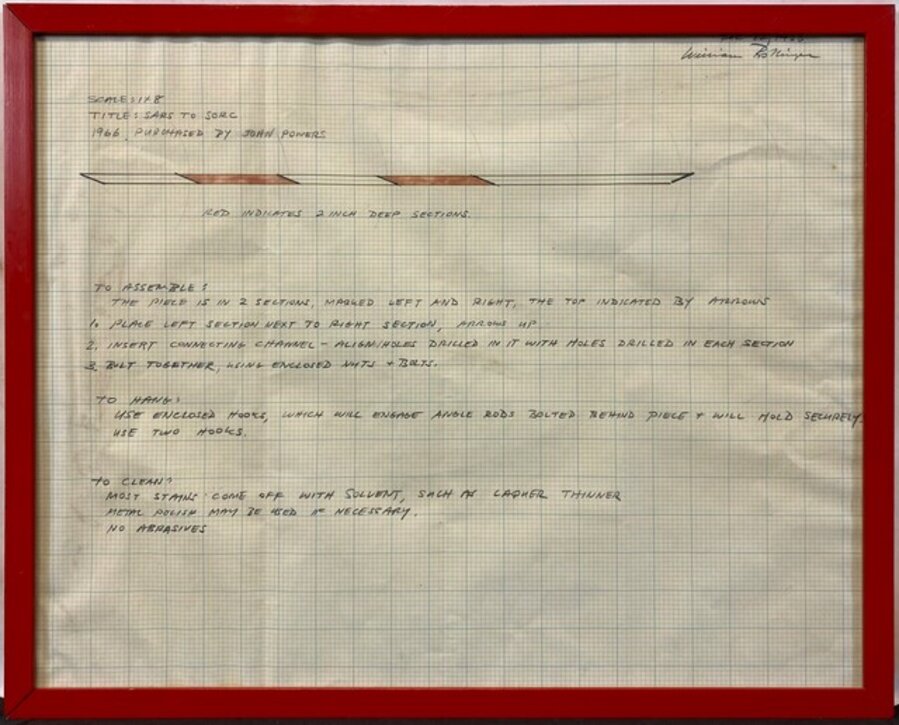 William Bollinger
SCALE: 1 x 8
TITLE: SARS TO SORC
1966 PURCHASED BY JOHN POWERS
RED INDICATES 2 INCH DEEP SECTIONS.
TO ASSEMBLE:
THE PIECE IS IN 2 SECTIONS, MARKED LEFT AND RIGHT, THE TOP INDICATED BY ARROWS
1. PLACE LEFT SECTION NEXT TO RIGHT SECTION, ARROWS UP
2. INSERT CONNECTING CHANNEL - ALIGN HOLES DRILLED IN IT WITH HOLES DRILLED IN EACH SECTION
3. BOLT TOGETHER, USING ENCLOSED NUTS + BOLTS.
TO HANG:
USE ENCLOSED HOOKS, WHICH WILL ENGAGE ANGLE RODS BOLTED BEHIND PIECE + WILL HOLD SECURELY
USE TWO HOOKS.
TO CLEAN:
MOST STAINS COME OFF WITH SOLVENT, SUCH AS LAQUER THINNER
METAL POLISH MAY BE USED IF NECESSARY.
NO ABRASIVES